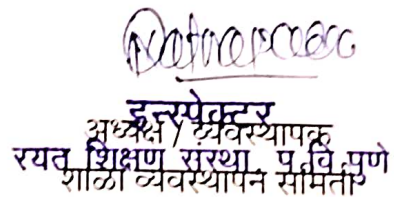 इन्स्पेक्टर
अध्यक्ष / व्यवस्थापक
रयत शिक्षण संस्था, प.वि.पुणे
शाळा व्यवस्थापन समिती